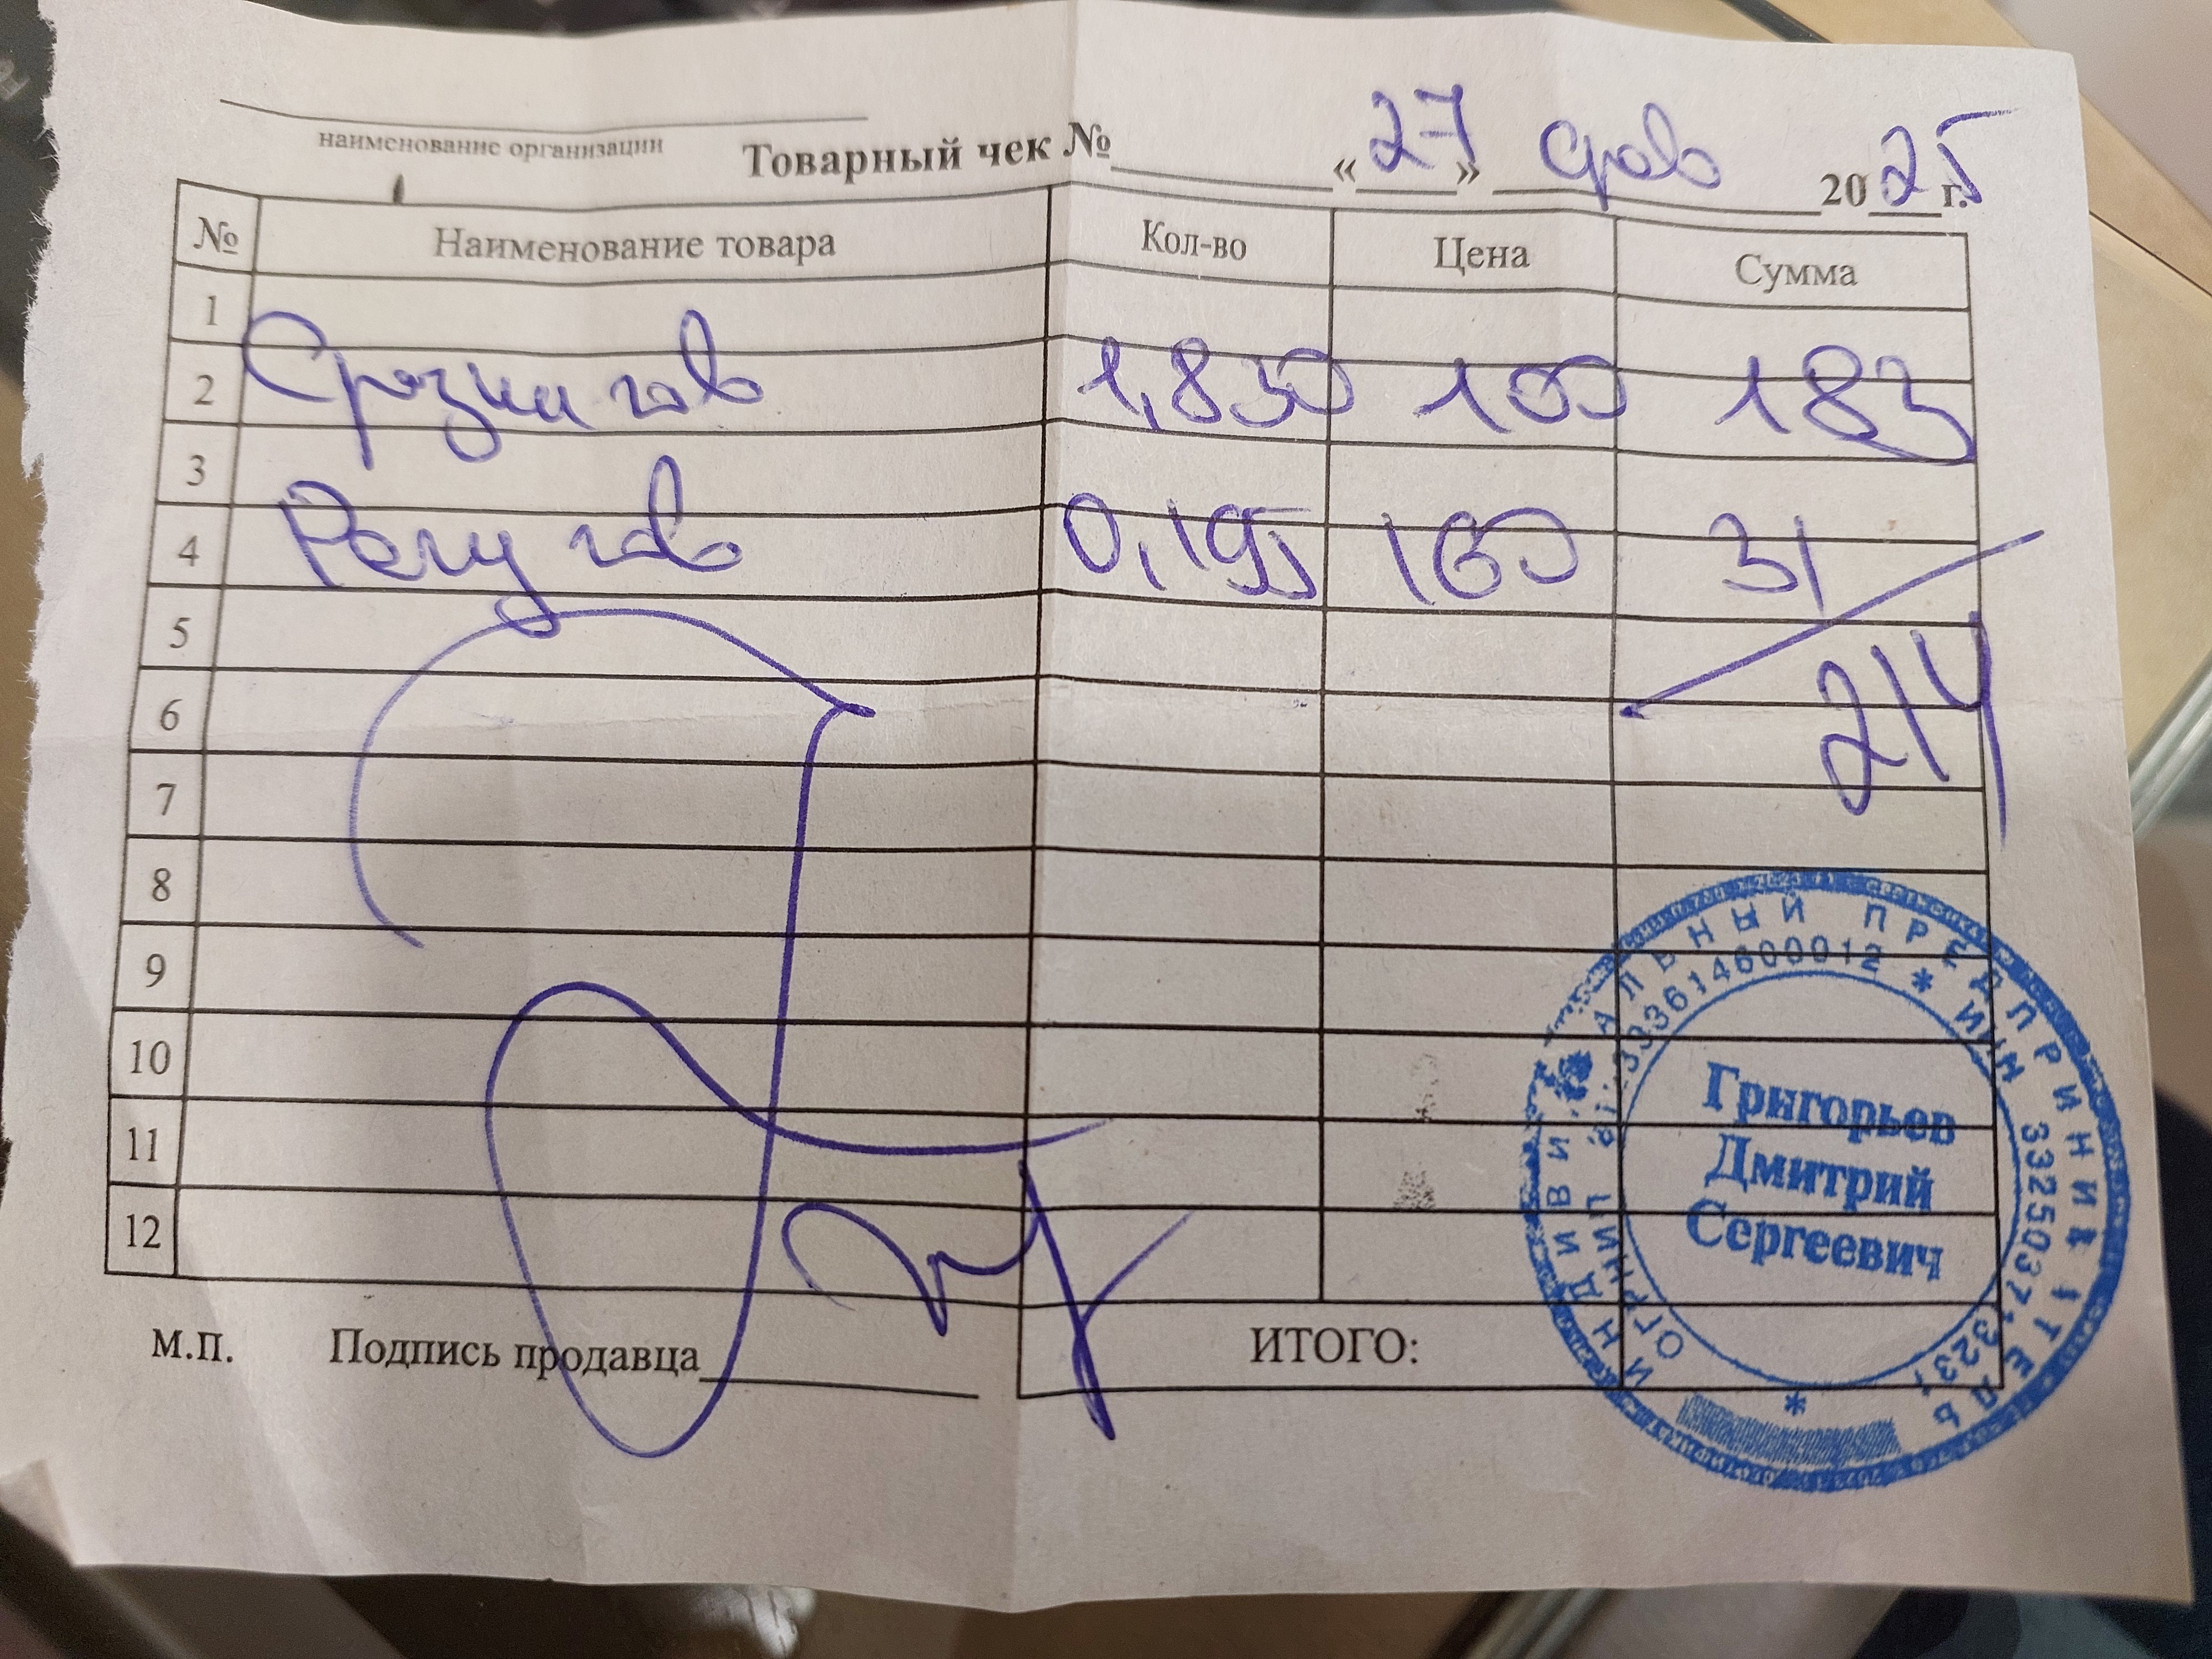 наименование организации
Товарный чек №______ «27» фев 2025 г.
№ Наименование товара Кол-во Цена Сумма
1
2 гов 1,830 100 183
3
4 Рагу гов 0,195 160 31
5
6 214
7
8
9
10
11
12
М.П. Подпись продавца
ИТОГО:
ИНДИВИДУАЛЬНЫЙ ПРЕДПРИНИМАТЕЛЬ
* ИНН 332503713231
Григорьев
Дмитрий
Сергеевич